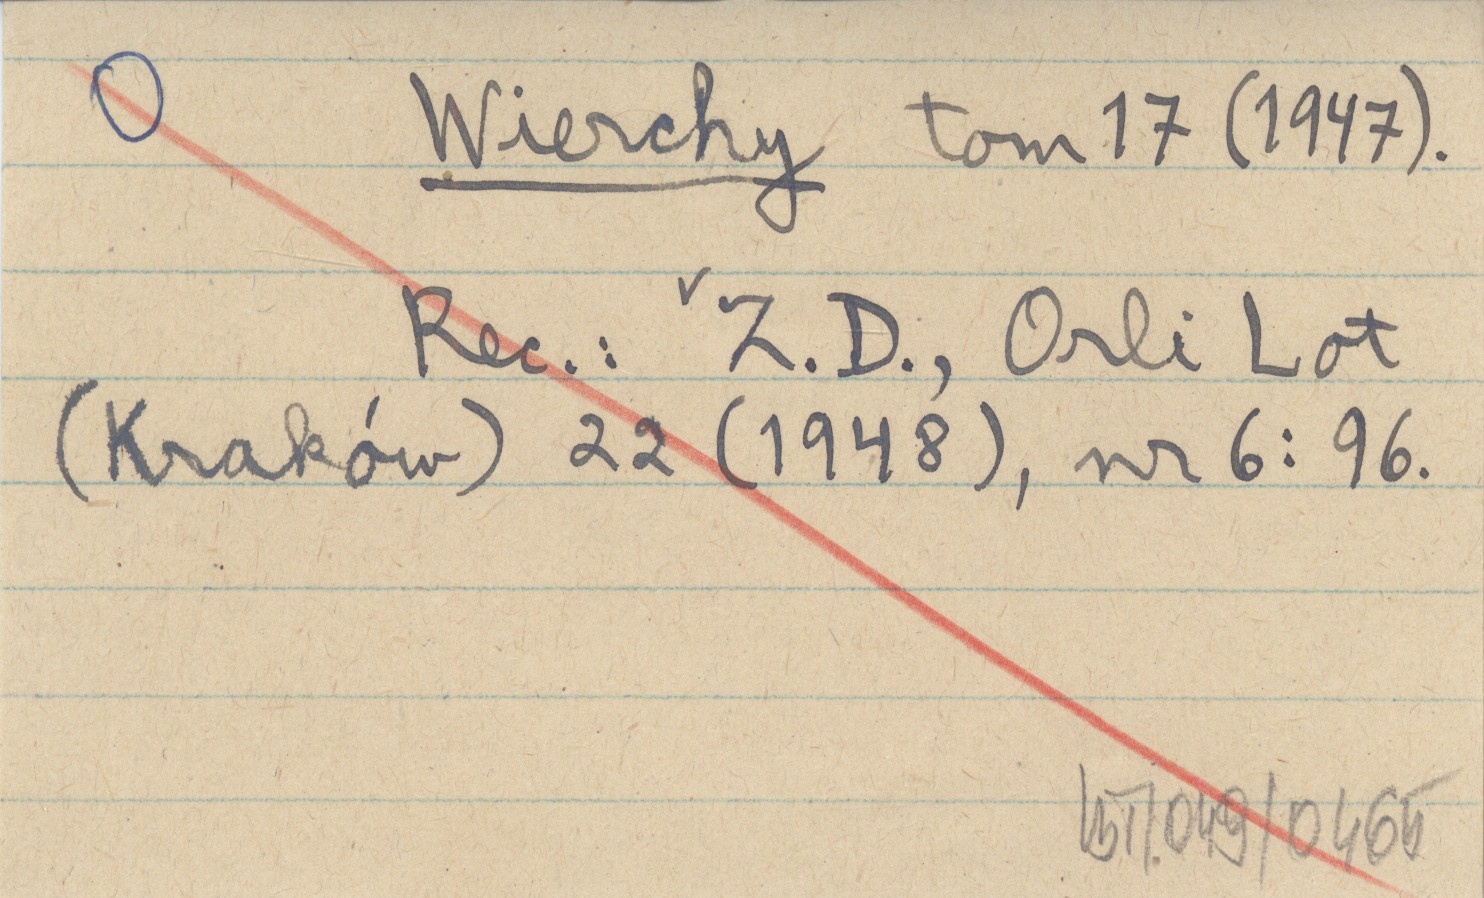 Wierchy tom 17 (1947).
Rec.: Z.D., Orli Lot
(Kraków) 22 (1948), nr 6: 96.